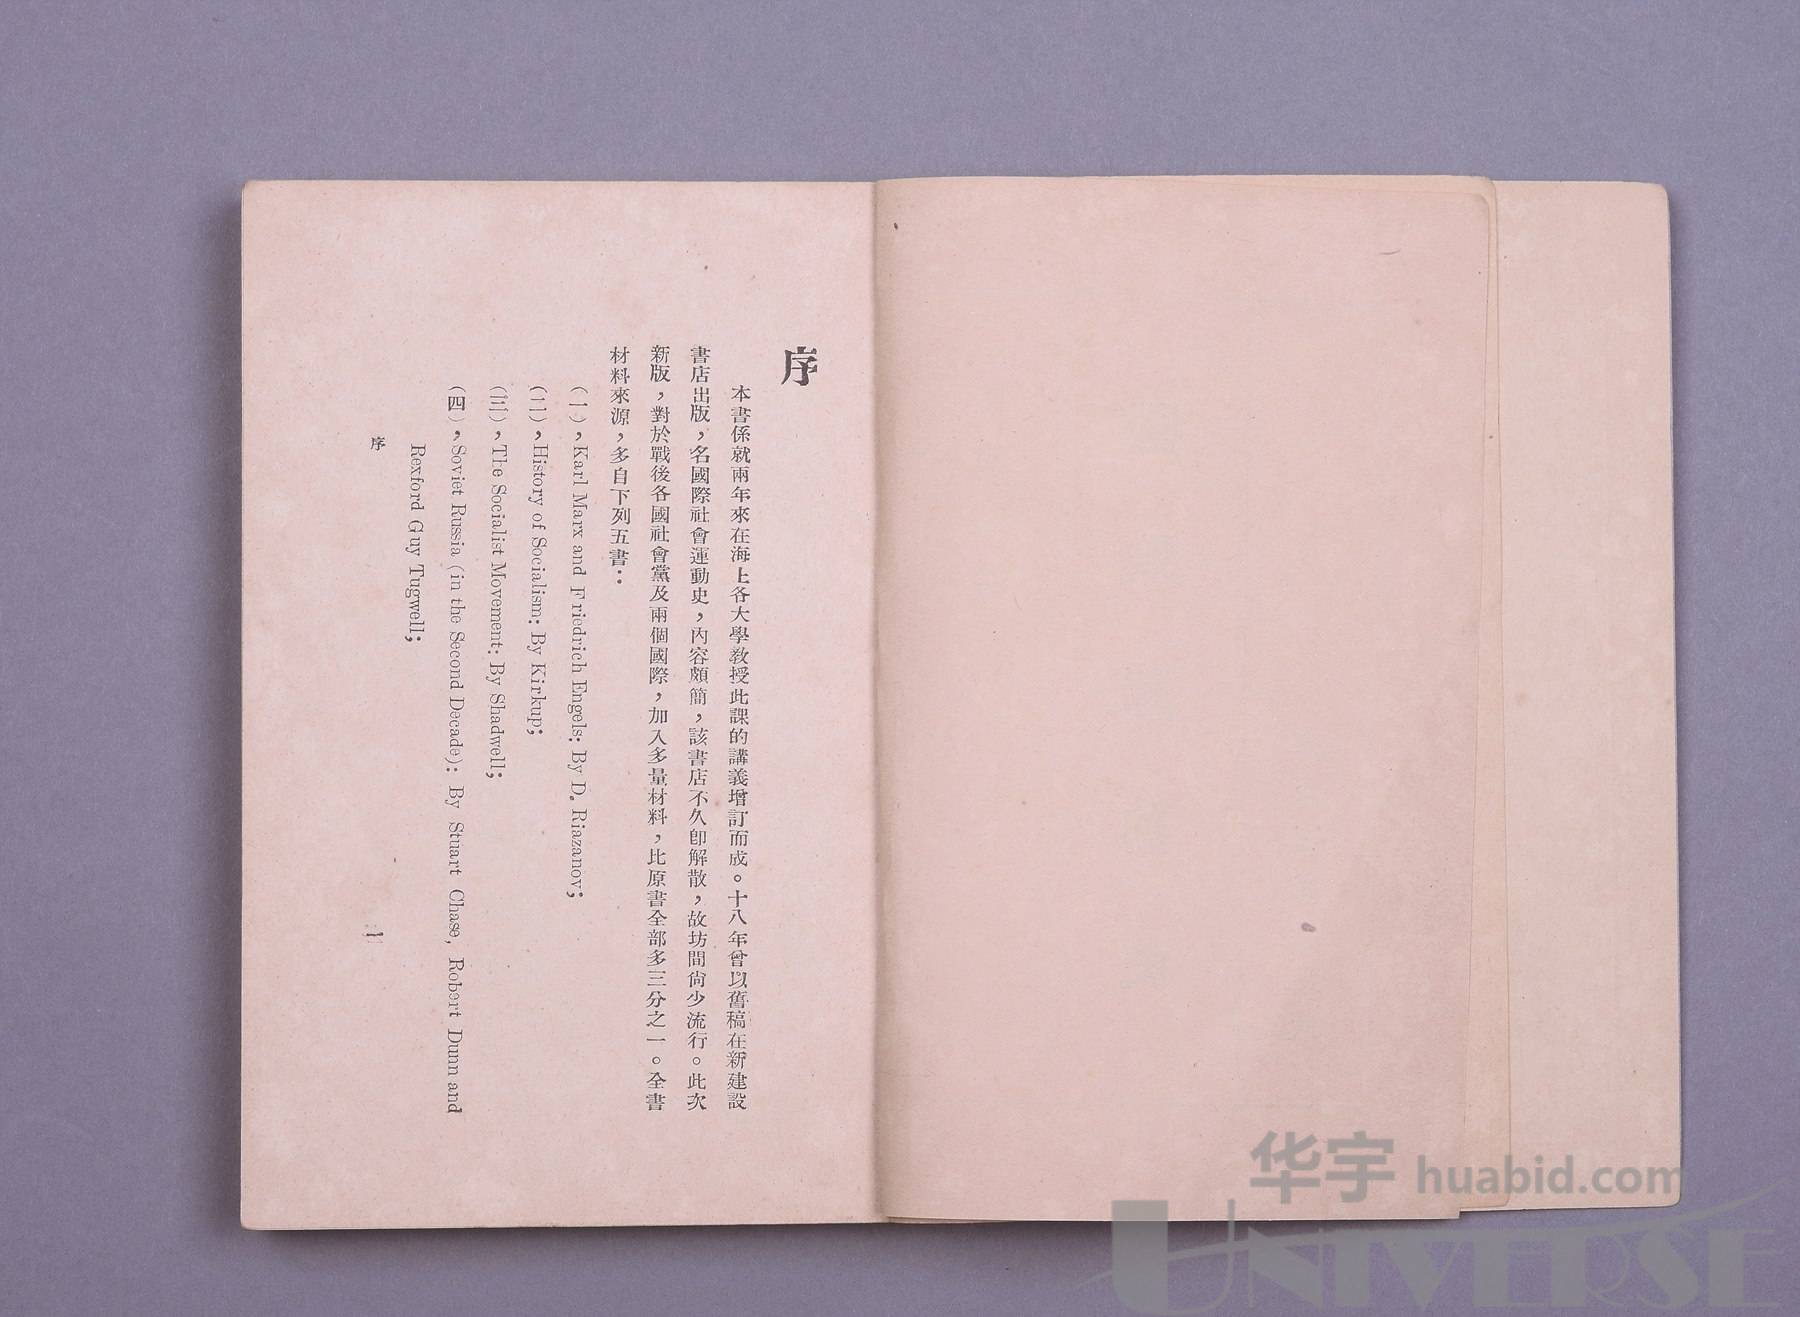 序
本書係就兩年來在海上各大學教授此課的講義增訂而成。十八年曾以舊稿在新建設
書店出版，名國際社會運動史，內容頗簡，該書店不久卽解散，故坊間尙少流行。此次
新版，對於戰後各國社會黨及兩個國際，加入多量材料，比原書全部多三分之一。全書
材料來源，多自下列五書：
（一），Karl Marx and Friedrich Engels: By D. Riazanov;
（二），History of Socialism: By Kirkup;
（三），The Socialist Movement: By Shadwell;
（四），Soviet Russia (in the Second Decade): By Stuart Chase, Robert Dunn and
Rexford Guy Tugwell;
序
一
华宇 huabid.com
UNIVERSE